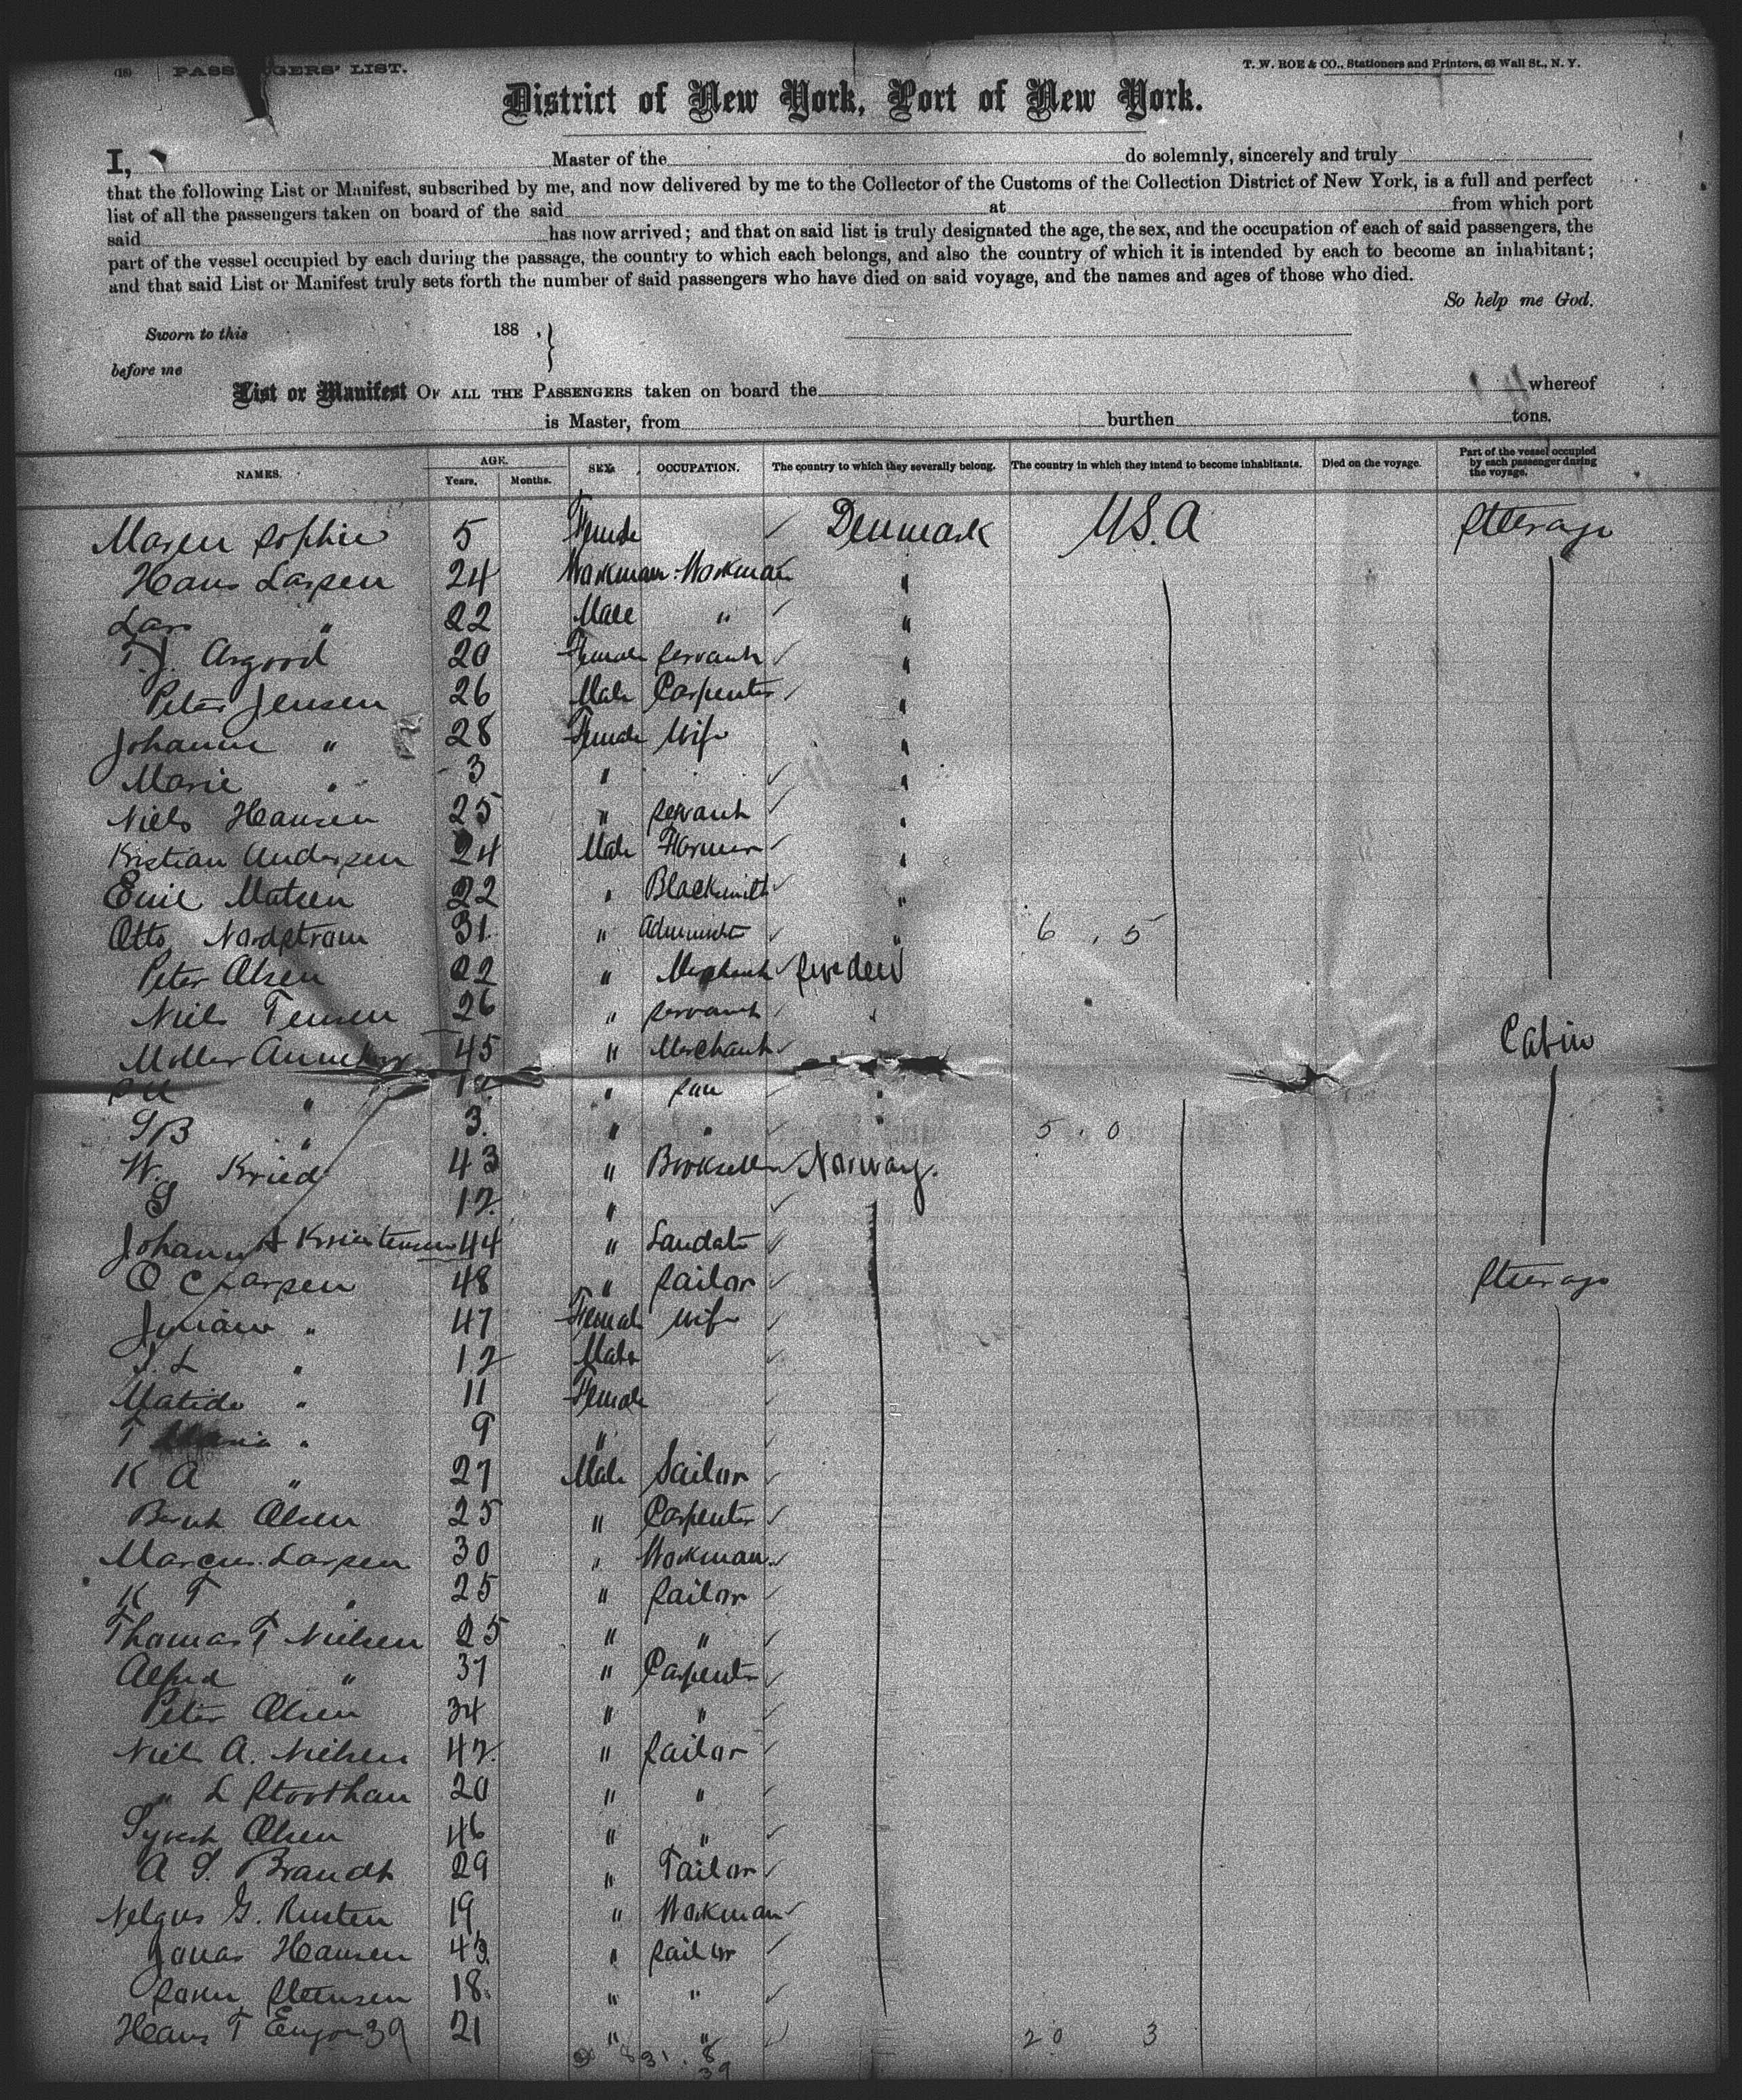 (18) PASSENGERS' LIST.
T. W. ROE & CO., Stationers and Printers, 63 Wall St., N. Y.
District of New York, Port of New York.
I, Master of the do solemnly, sincerely and truly
that the following List or Manifest, subscribed by me, and now delivered by me to the Collector of the Customs of the Collection District of New York, is a full and perfect
list of all the passengers taken on board of the said at from which port
said has now arrived; and that on said list is truly designated the age, the sex, and the occupation of each of said passengers, the
part of the vessel occupied by each during the passage, the country to which each belongs, and also the country of which it is intended by each to become an inhabitant;
and that said List or Manifest truly sets forth the number of said passengers who have died on said voyage, and the names and ages of those who died.
So help me God.
Sworn to this 188 .
before me
List or Manifest OF ALL THE PASSENGERS taken on board the whereof
is Master, from burthen tons.
NAMES. AGE. Years. Months. SEX. OCCUPATION. The country to which they severally belong. The country in which they intend to become inhabitants. Died on the voyage. Part of the vessel occupied by each passenger during the voyage.
Maren Sophie 5 Female Denmark U.S.A Steerage
Hans Larsen 24 Workman Workman "
Lars " 22 Male " "
Asgood 20 Female Servant "
Peter Jensen 26 Male Carpenter "
Johanne " 28 Female Wife "
Marie " 3 " "
Niels Hansen 25 " Servant "
Kristian Andersen 24 Male Farmer "
Emil Matsen 22 " Blacksmith "
Otto Nordstrom 31 " " 6 . 5
Peter Olsen 22 " Merchant Sweden
Niels Tensen 26 " Servant "
Moller 45 " Merchant Cabin
" 12 " Son "
" 3 " " " 5 . 0
W. Kried 43 " Bookseller Norway.
S 12 "
Johann A Kristensen 44 " Landate
O C Larsen 48 " Sailor Steerage
" 47 Female Wife
L " 12 Male
Matilde " 11 Female
T " 9 "
K A " 27 Male Sailor
Bernt Olsen 25 " Carpenter
Marcus Larsen 30 " Workman
K T " 25 " Sailor
Thomas T Nielsen 25 " "
Alfred " 37 " Carpenter
Peter Olsen 34 " "
Niels A. Nielsen 42 " Sailor
" L Stoothan 20 " "
Syvert Olsen 46 " "
A S. Brandt 29 " Tailor
G. Rusten 19 " Workman
Jonas Hansen 43 " Sailor
18 " "
Hans T 39 21 " " 20 3
8 31 . 8
39